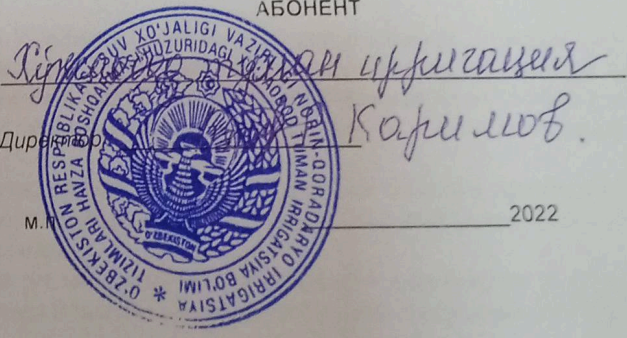 АБОНЕНТ
туман ирригация
Директор Каримов.
М.П 2022
O'ZBEKISTON RESPUBLIKASI SUV XO'JALIGI VAZIRLIGI NORIN-QORADARYO IRRIGATSIYA
TIZIMLARI HAVZA BOSHQARMASI HUZURIDAGI TUMAN IRRIGATSIYA BO'LIMI
O'ZBEKISTON